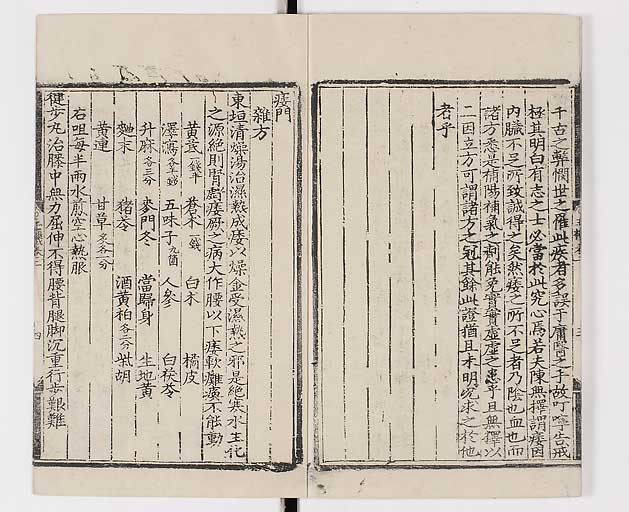 千古之弊憫世之罹此疾者多誤于庸醫之手故叮嚀告戒
極其明白有志之士必當於此究心焉若夫陳無擇謂痿因
内臟不足所致誠得之矣然痿之所不足者乃陰也血也而
諸方悉是補陽補氣之劑能免實實虛虛之患乎且無擇以
二因立方可謂諸方之冠其餘此證猶且未明究求之於他
者乎
痿門
雜方
東垣清燥湯治濕熱成痿以燥金受濕熱之邪是絕寒水生化
之源絕則腎虧痿厥之病大作腰以下痿軟癱瘓不能動
黃芪一錢半 蒼术一錢 白术 橘皮
澤瀉各半錢 五味子九箇 人參 白茯苓
升麻各三分 麥門冬 當歸身 生地黃
麯末 猪苓 酒黃栢各二分 柴胡
黃連 甘草各二分
右㕮每半兩水煎空心熱服
健步丸治膝中無力屈伸不得腰背腿脚沉重行步艱難